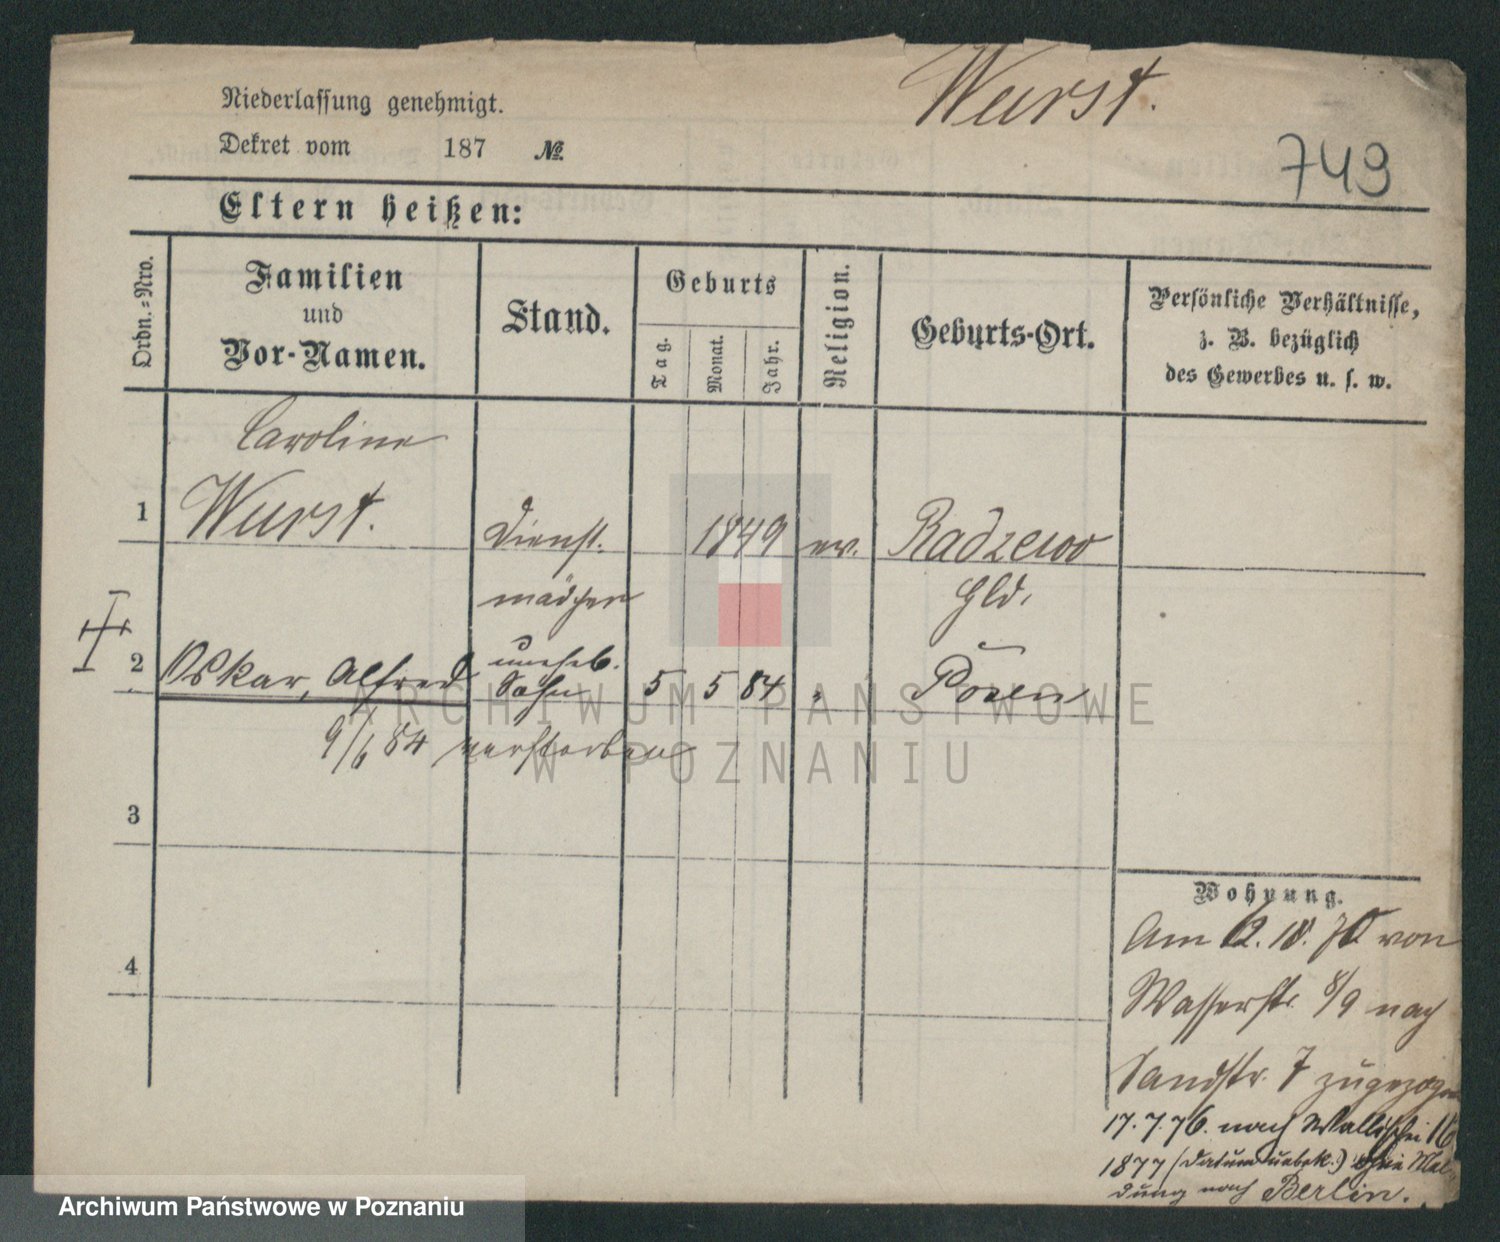 Wurst.
749
Niederlassung genehmigt.
Dekret vom 187 №
Eltern heißen:
Ordn.-Nro.
Familien
und
Vor-Namen.
Stand.
Geburts
Tag.
Monat.
Jahr.
Religion.
Geburts-Ort.
Persönliche Verhältnisse,
z. B. bezüglich
des Gewerbes u. s. w.
Caroline
1 Wurst. Dienst- 1849 ev. Radzewo
mädchen Hld.
2 Oskar, Alfred uneheb. Sohn 5 5 84 " Posen
9/6 84 verstorben
3
4
Wohnung.
Am 12. 10. 70 von
Wasserstr. 8/9 nach
Sandstr. 7 zugezogen
17.7.76. nach Wallischei 16
1877 (Datum unbek.) ohne Mel-
dung nach Berlin.
ARCHIWUM PAŃSTWOWE
W POZNANIU
Archiwum Państwowe w Poznaniu